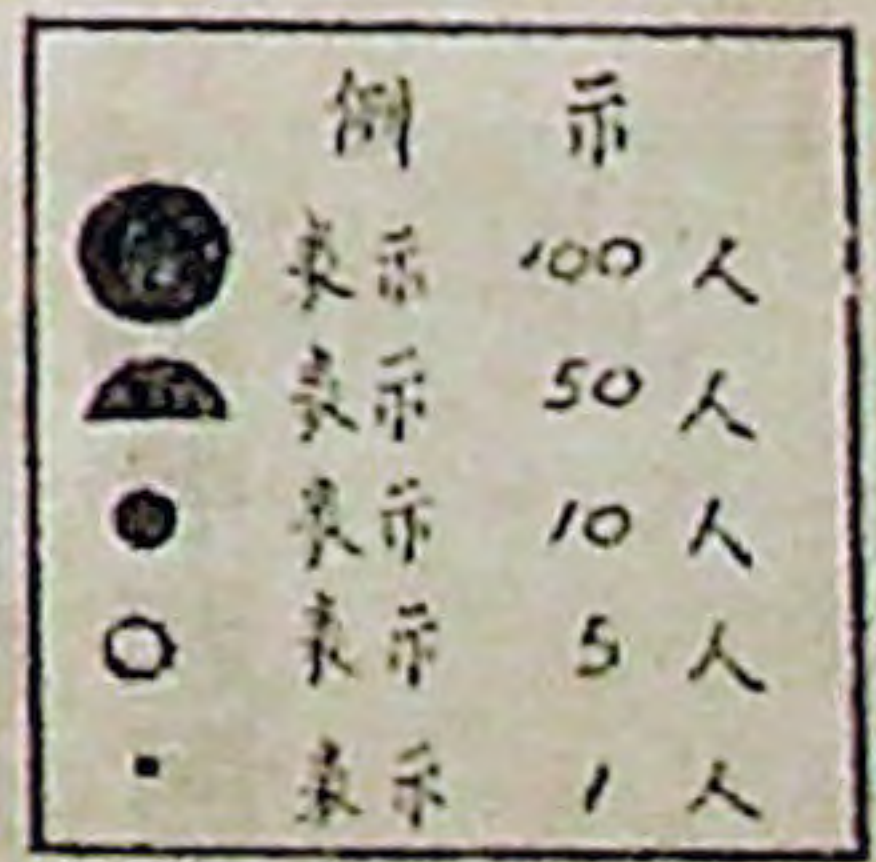 例 示
表示 100 人
表示 50 人
表示 10 人
表示 5 人
表示 1 人